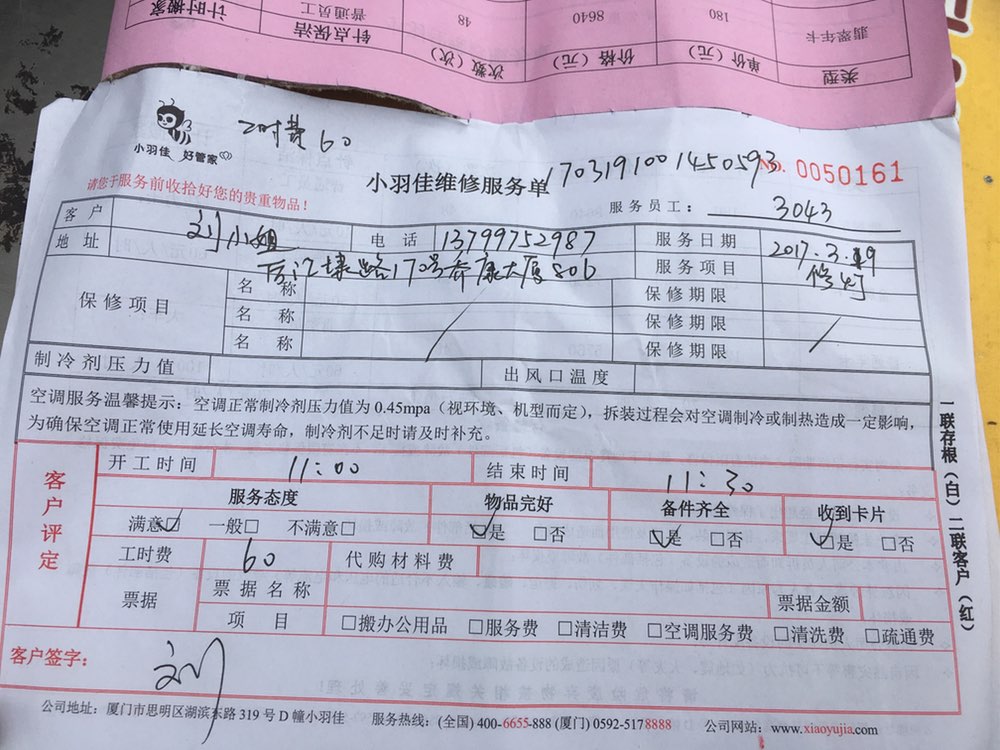 类型 单价（元） 价格（元） 次数（次） 针点保洁 计时搬家
翡翠年卡 180 8640 48 普通员工
工时费60
小羽佳 好管家
请您于服务前收拾好您的贵重物品！
小羽佳维修服务单
1703191001450593
NO. 0050161
服务员工： 3043
客户 刘小姐 电话 13799752987 服务日期 2017.3.19
地址 路170号 康大厦806 服务项目 修灯
保修项目 名称 保修期限
名称 保修期限
名称 保修期限
制冷剂压力值 出风口温度
空调服务温馨提示：空调正常制冷剂压力值为 0.45mpa（视环境、机型而定），拆装过程会对空调制冷或制热造成一定影响，
为确保空调正常使用延长空调寿命，制冷剂不足时请及时补充。
客户评定
开工时间 11:00 结束时间 11:30
服务态度 物品完好 备件齐全 收到卡片
满意☑ 一般□ 不满意□ ☑是 □否 ☑是 □否 ☑是 □否
工时费 60 代购材料费
票据 票据名称 票据金额
项目 □搬办公用品 □服务费 □清洁费 □空调服务费 □清洗费 □疏通费
客户签字： 刘
一联存根（白）二联客户（红）
公司地址：厦门市思明区湖滨东路 319 号 D 幢小羽佳 服务热线：(全国) 400-6655-888 (厦门) 0592-5178888 公司网站：www.xiaoyujia.com